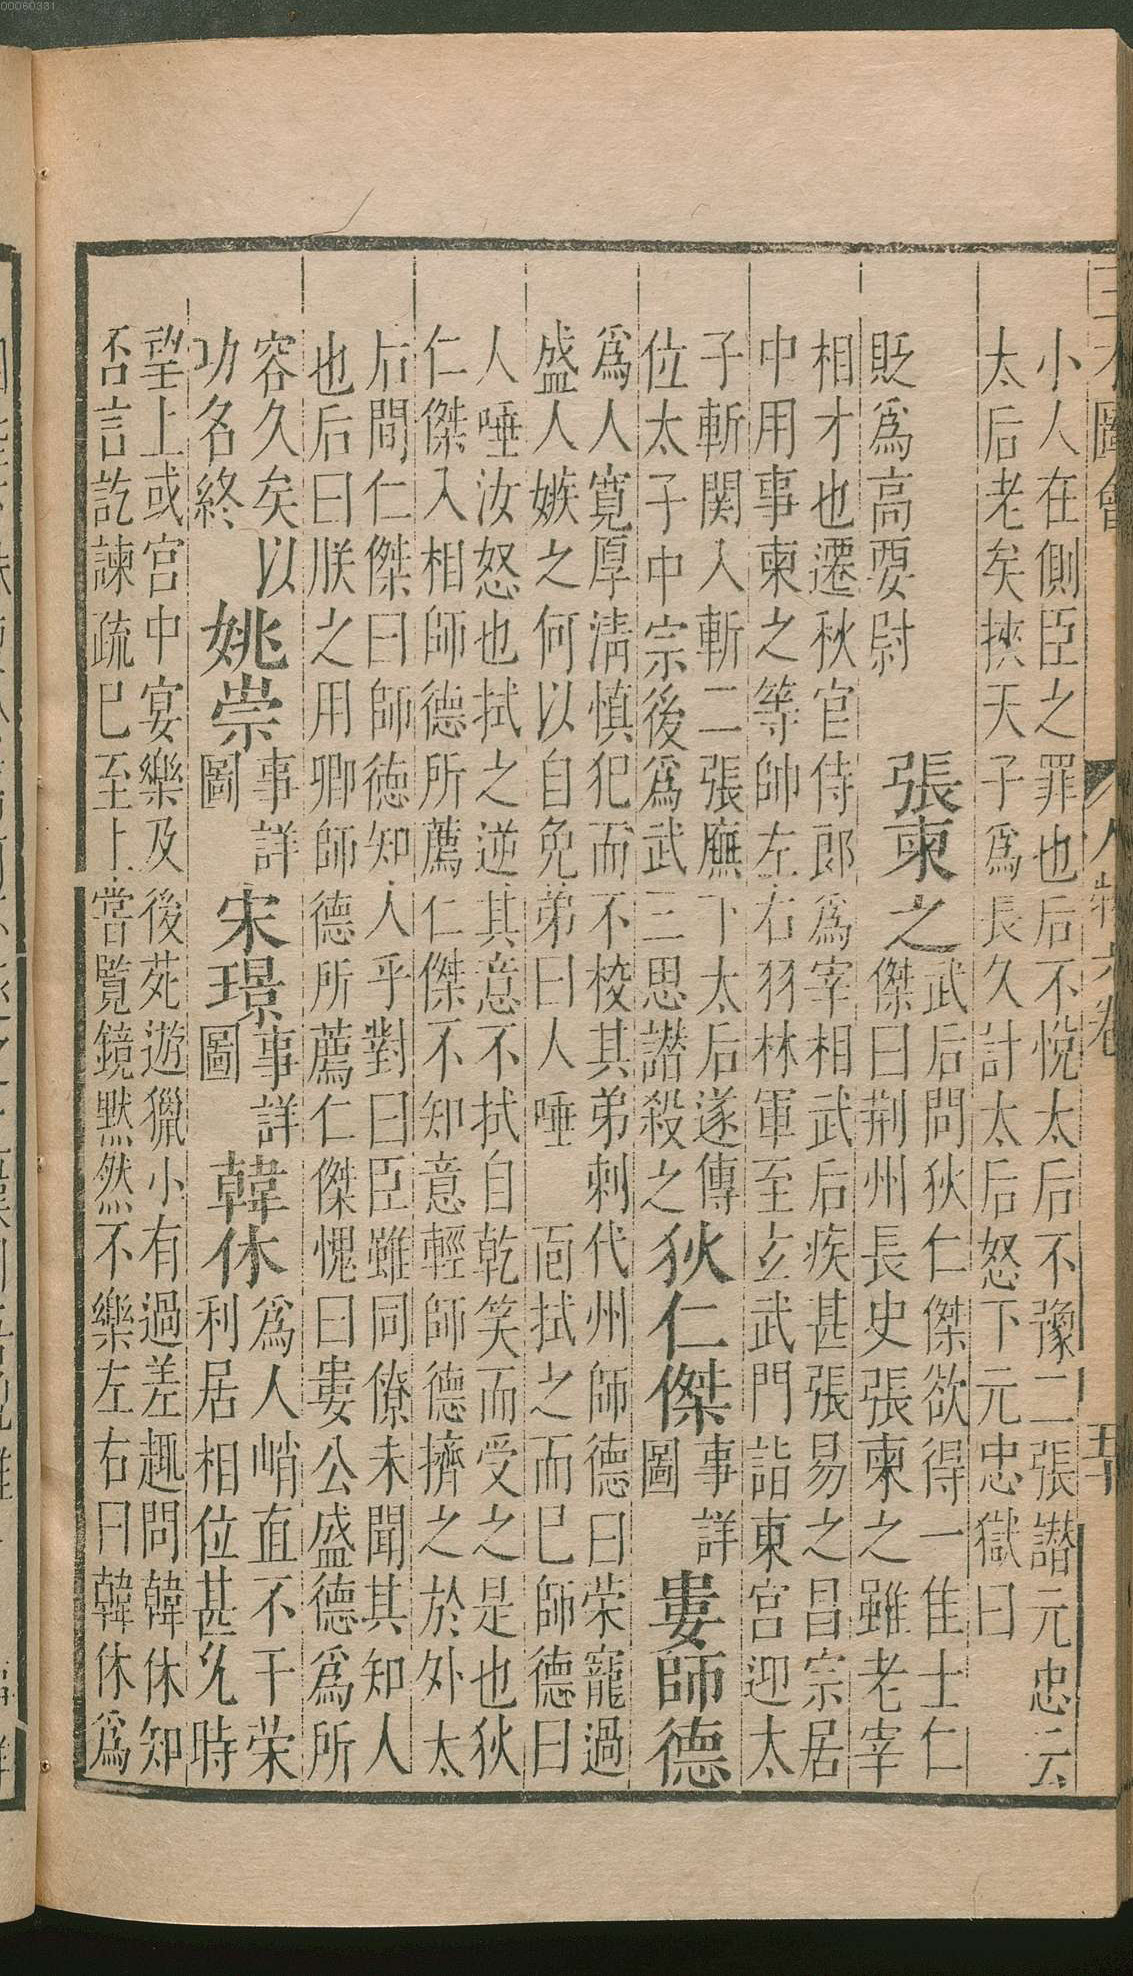 小人在側臣之罪也后不悅太后不豫二張譖元忠云
太后老矣挾天子爲長久計太后怒下元忠獄曰
貶爲高要尉
張柬之
武后問狄仁傑欲得一隹士仁
傑曰荆州長史張柬之雖老宰
相才也遷秋官侍郎爲宰相武后疾甚張易之昌宗居
中用事柬之等帥左右羽林軍至玄武門詣東宮迎太
子斬関入斬二張廡下太后遂傳
位太子中宗後爲武三思譖殺之
狄仁傑
事詳
圖
婁師德
爲人寬厚淸慎犯而不校其弟刺代州師德曰荣寵過
盛人嫉之何以自免弟曰人唾靣拭之而巳師德曰
人唾汝怒也拭之逆其意不拭自乾笑而受之是也狄
仁傑入相師德所薦仁傑不知意輕師德擠之於外太
后問仁傑曰師德知人乎對曰臣雖同僚未聞其知人
也后曰朕之用卿師德所薦仁傑愧曰婁公盛德爲所
容久矣以
功名終
姚崇
事詳
圖
宋璟
事詳
圖
韓休
爲人峭直不干荣
利居相位甚允時
望上或宮中宴樂及後苑遊獵小有過差趣問韓休知
否言訖諫疏巳至上嘗覽鏡黙然不樂左右曰韓休爲
三才圖會
人物六卷
五十
00060331